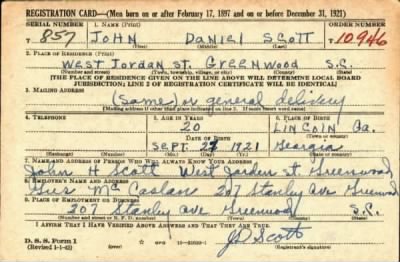 REGISTRATION CARD—(Men born on or after February 17, 1897 and on or before December 31, 1921)
SERIAL NUMBER 1. NAME (Print) ORDER NUMBER
857 JOHN DANIEL SCOTT 10946
(First) (Middle) (Last)
2. PLACE OF RESIDENCE (Print)
West Jordan St. Greenwood S.C.
(Number and street) (Town, township, village, or city) (County) (State)
[THE PLACE OF RESIDENCE GIVEN ON THE LINE ABOVE WILL DETERMINE LOCAL BOARD
JURISDICTION; LINE 2 OF REGISTRATION CERTIFICATE WILL BE IDENTICAL]
3. MAILING ADDRESS
(Same) or general delivery
[Mailing address if other than place indicated on line 2. If same insert word same]
4. TELEPHONE 5. AGE IN YEARS 6. PLACE OF BIRTH
20 LINCOLN
DATE OF BIRTH (Town or county)
SEPT. 27 1921 Georgia
(Exchange) (Number) (Mo.) (Day) (Yr.) (State or country)
7. NAME AND ADDRESS OF PERSON WHO WILL ALWAYS KNOW YOUR ADDRESS
John H Scott West Jorden st. Greenwood
8. EMPLOYER'S NAME AND ADDRESS
Gus McCaslan 207 Stanley Ave Greenwood
9. PLACE OF EMPLOYMENT OR BUSINESS
207 Stanley Ave Greenwood S.C.
(Number and street or R. F. D. number) (Town) (County) (State)
I AFFIRM THAT I HAVE VERIFIED ABOVE ANSWERS AND THAT THEY ARE TRUE.
D. S. S. Form 1 JD Scott
(Revised 1-1-42) (Registrant's signature)